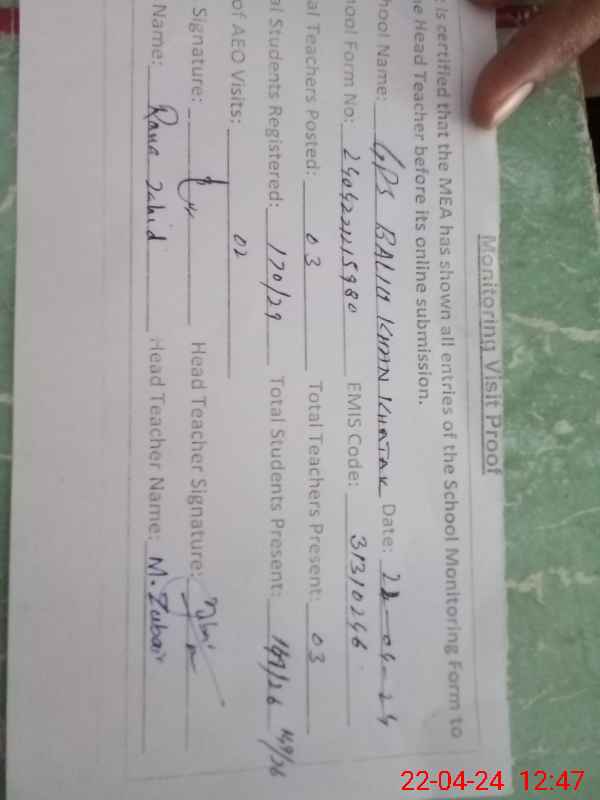 Monitoring Visit Proof
is certified that the MEA has shown all entries of the School Monitoring Form to
e Head Teacher before its online submission.
hool Name: GPS BALIU KHAN KHATAK Date: 22-04-24
ool Form No: EMIS Code: 31310246
al Teachers Posted: 03 Total Teachers Present: 03
al Students Registered: 170/29 Total Students Present: 149/26 149/26
of AEO Visits: 02
Signature: Head Teacher Signature:
Name: Rana Zahid Head Teacher Name: M. Zubair
22-04-24 12:47